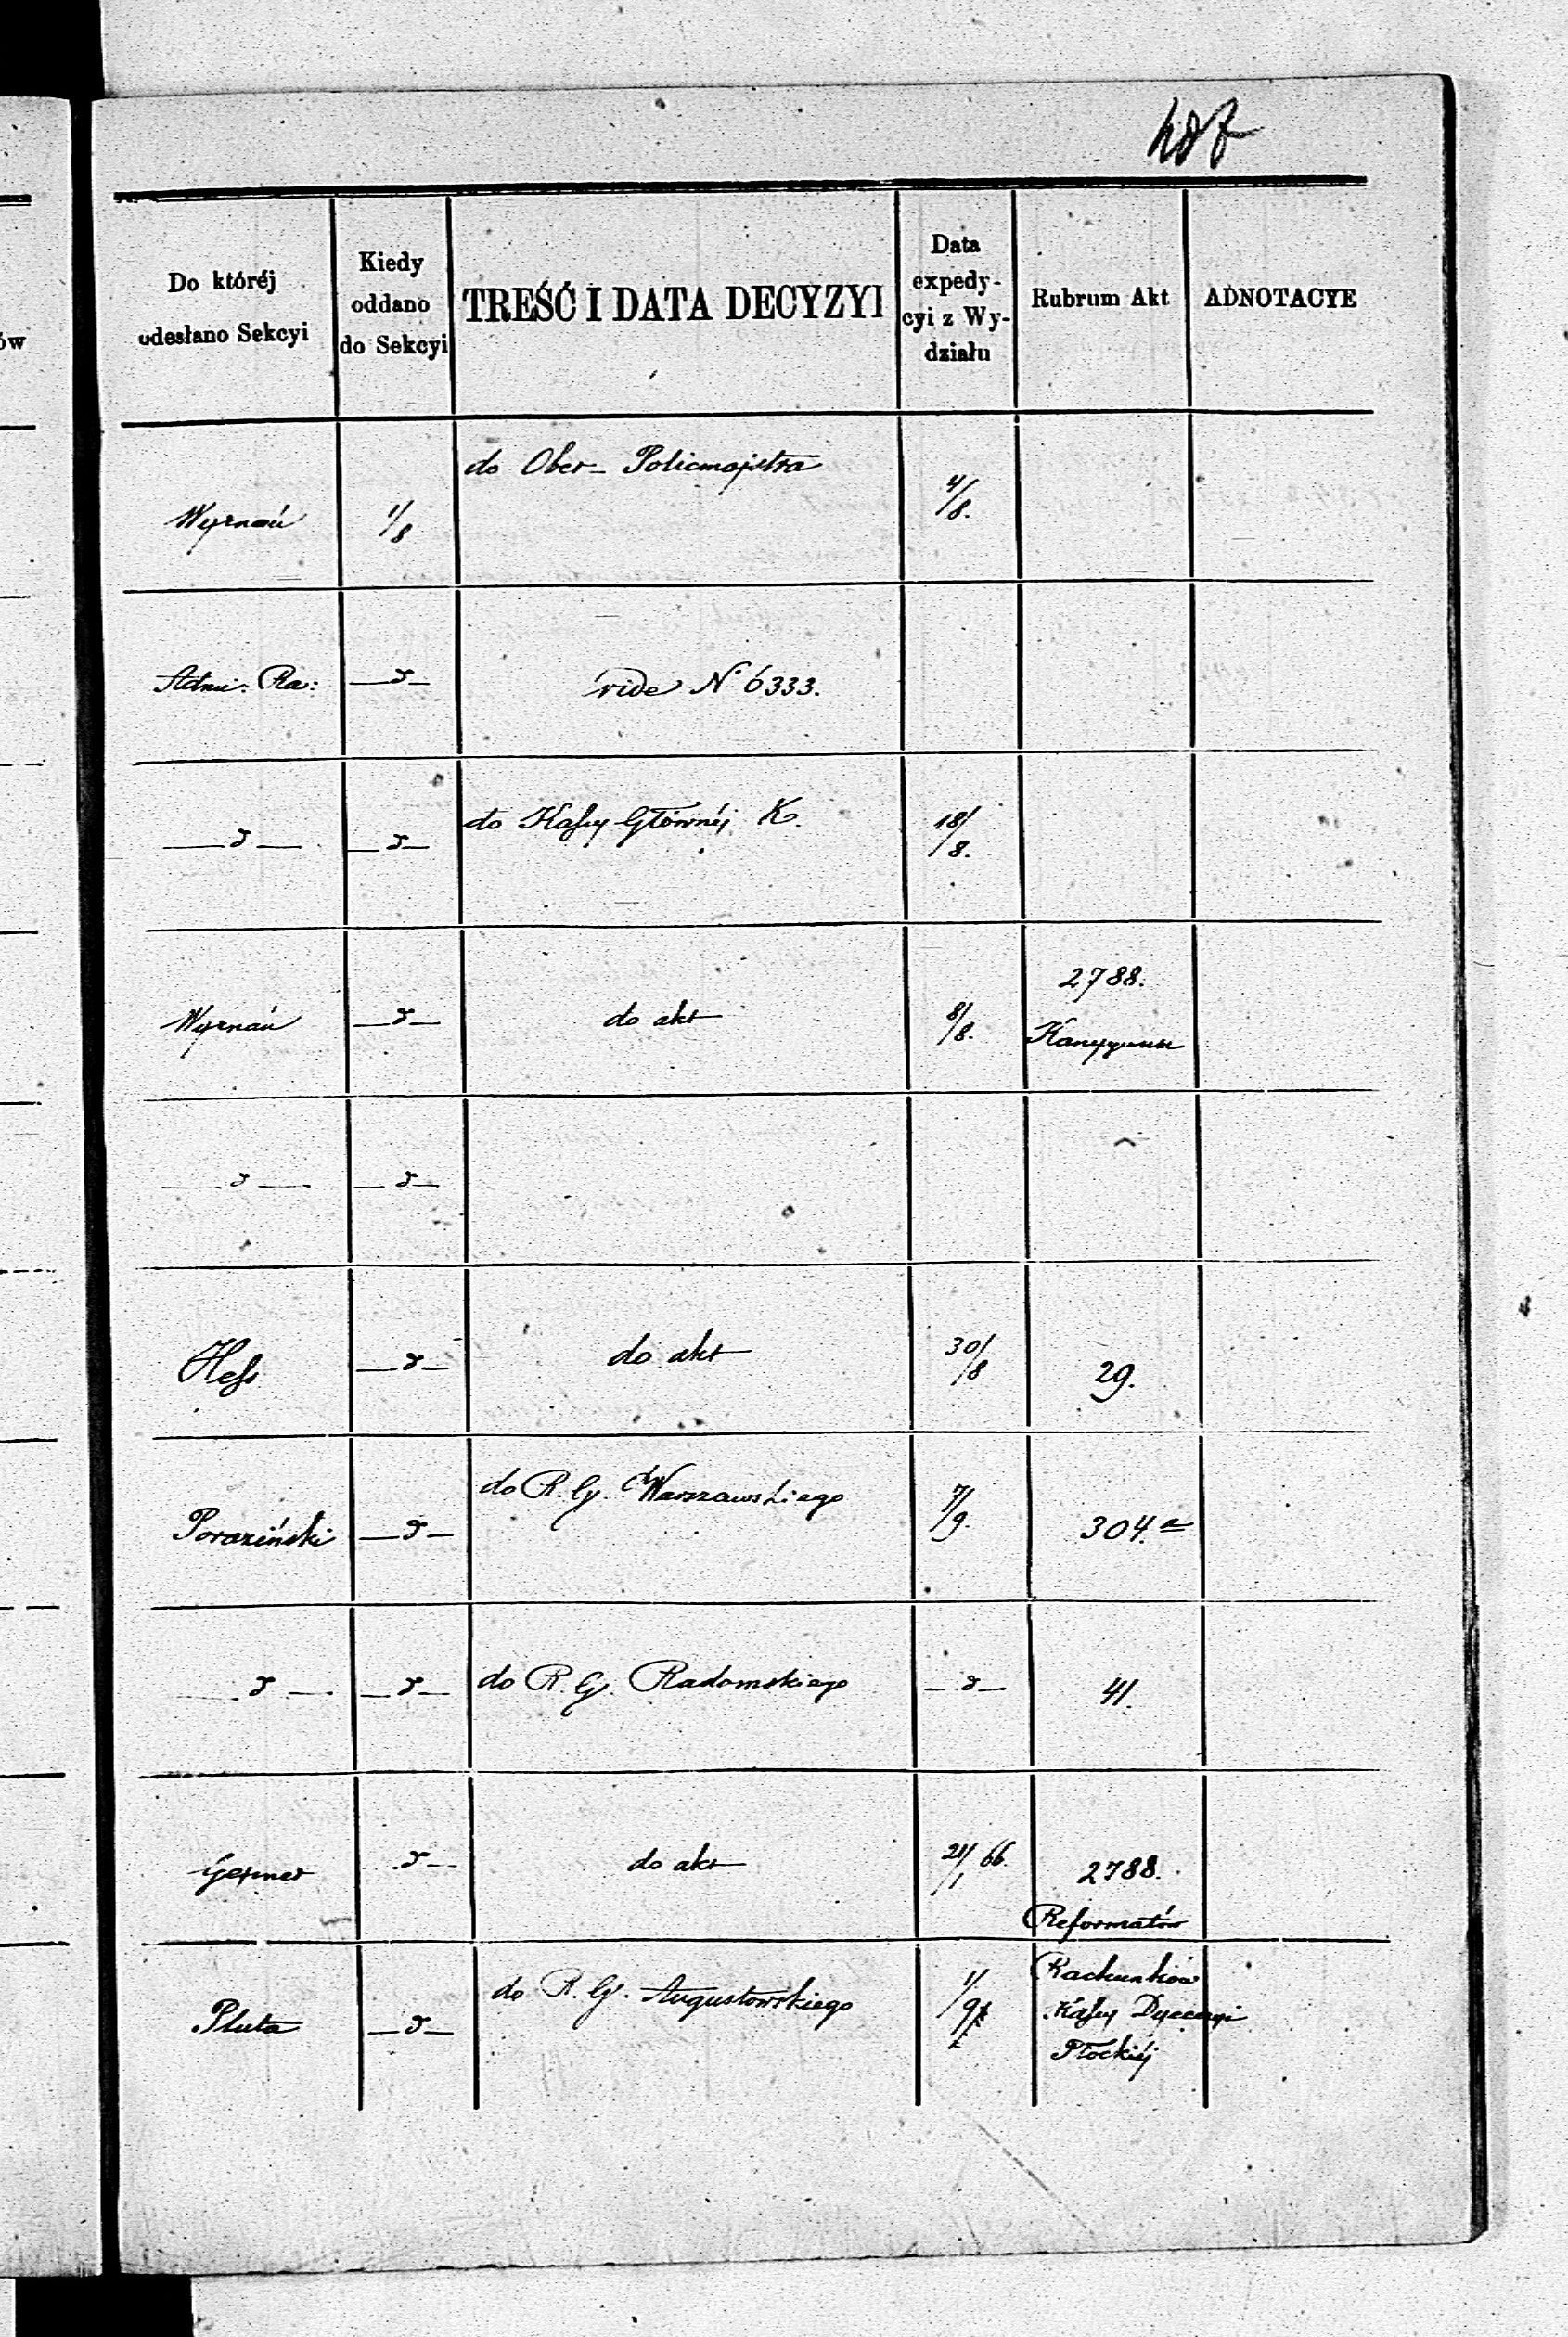 ów
Do któréj
udesłano Sekcyi
Kiedy
oddano
do Sekcyi
TREŚĆ I DATA DECYZYI
Data
expedy-
cyi z Wy-
działu
Rubrum Akt
ADNOTACYE
Wyznań
1/8
do Ober- Policmajstra
4/8.
Admi: Ra:
—d—
vide N° 6333.
—d—
—d—
do Kassy Głównéj K.
18/8.
Wyznań
—d—
do akt
8/8.
2788.
—d—
—d—
Hess
—d—
do akt
30/8
29.
Poraziński
—d—
do R. G. Warszawskiego
7/9.
304.a
—d—
—d—
do R. G. Radomskiego
—d—
41.
—d—
do akt
21/1 66.
2788.
Reformatów
Pluta
—d—
do R. G. Augustowskiego
1/9
Rachunków
Kassy Dyecezyi
Płockiéj